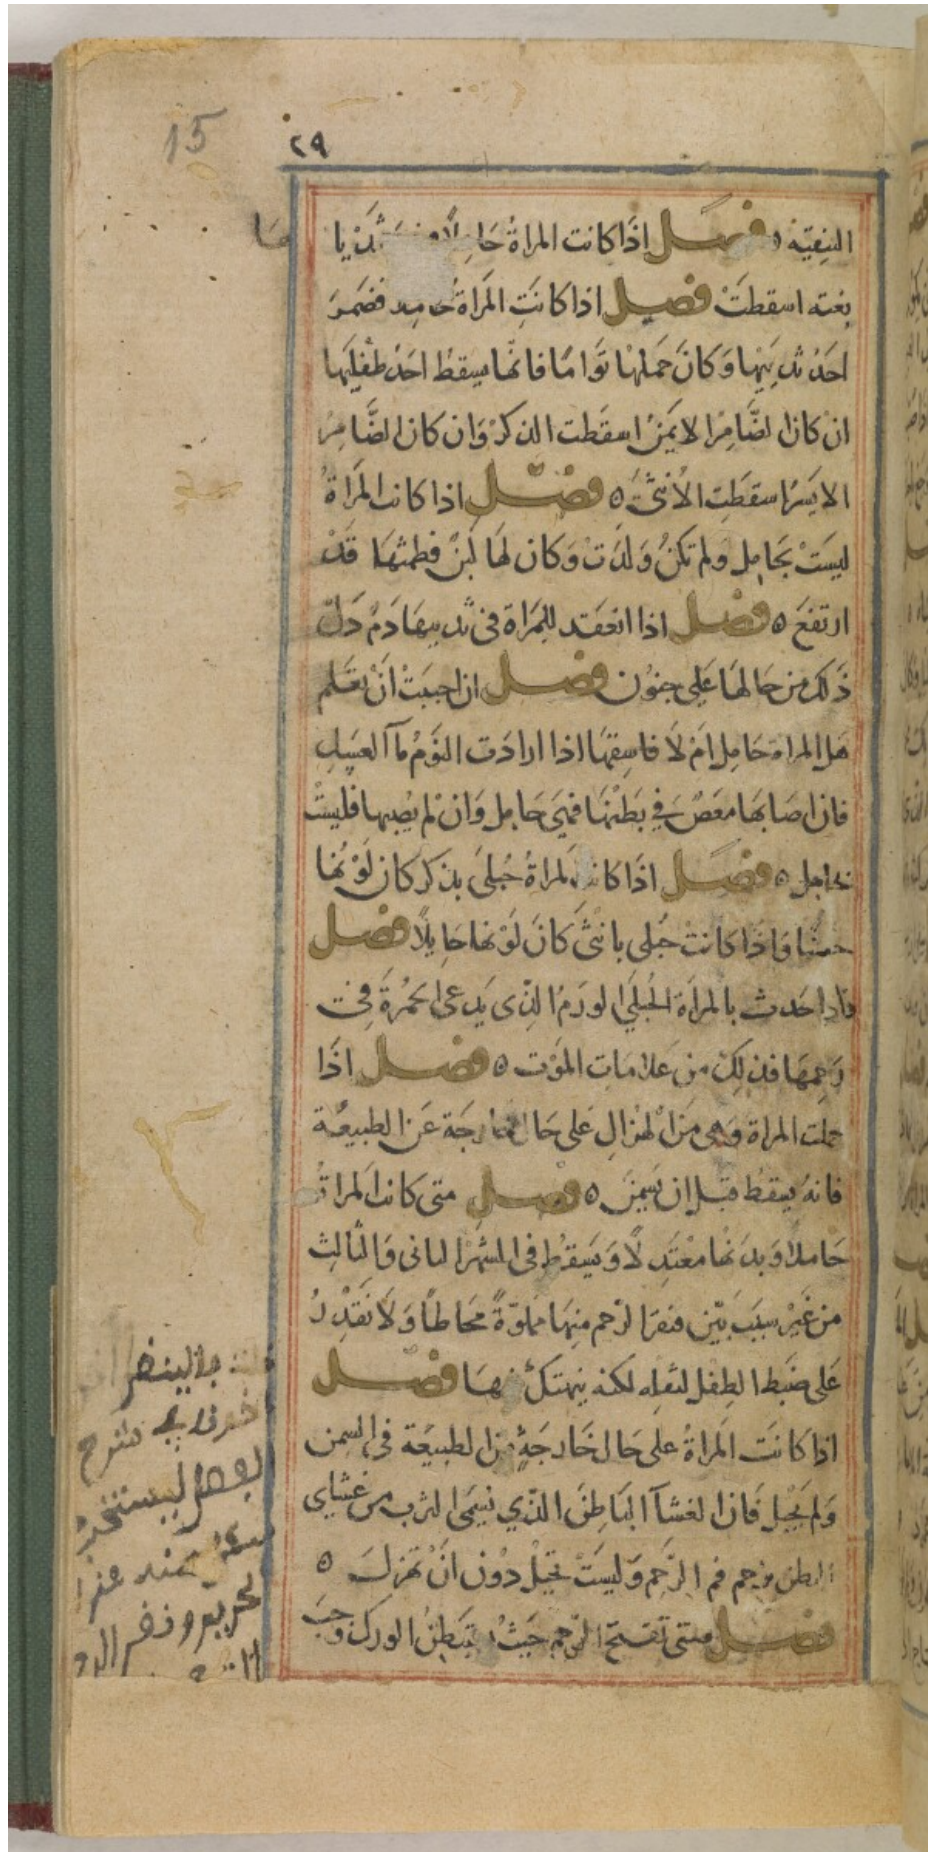 15
٢٩
النقية ٥ فصل اذا كانت المراة حا ثديا
ها
بغته اسقطت فصل اذا كانت المراة فضمر
احد ثدييها وكان حملها تواما فانها يسقط احد طفليها
ان كان الضامر الايمن اسقطت الذكر وان كان الضامر
الايسر اسقطت الأنثى ٥ فصل اذا كانت المراة
ليست بحامل ولم تكن ولدت وكان لها لبن فطمثها قد
ارتفع ٥ فصل اذا انعقد للمراة في ثدييها دم دل
ذلك من حالها على جنون فصل ان احببت أن تعلم
هل المراة حامل ام لا فاسقها اذا ارادت النوم مآ العسل
فان اصابها مغص في بطنها فهي حامل وان لم يصبها فليست
بحامل ٥ فصل اذا كانت المراة حبلى بذكر كان لونها
حسنا واذا كانت حبلى بانثى كان لونها حايلا فصل
واذا حدث بالمراة الحبلى الورم الذي يدعى الحمرة في
رحمها فذلك من علامات الموت ٥ فصل اذا
حملت المراة وهي من الهزال على حال خارجة عن الطبيعة
فانه يسقط قبل ان تسمن ٥ فصل متى كانت المراة
حاملا وبدنها معتدلا ويسقط في الشهر الثاني والثالث
من غير سبب بين فنقر الرحم منها مملوة مخاطا ولا تقدر
على ضبط الطفل لثقله لكنه ينهتك منها فصل
اذا كانت المراة على حال خارجة من الطبيعة في السمن
ولم تحبل فان الغشآ الباطن الذي يسمى الثرب من غشاي
البطن يزحم فم الرحم وليست تحبل دون ان تهزل ٥
فصل متى تقيح الرحم حيث يستبطن الورك وجب
جالينوس
في شرح